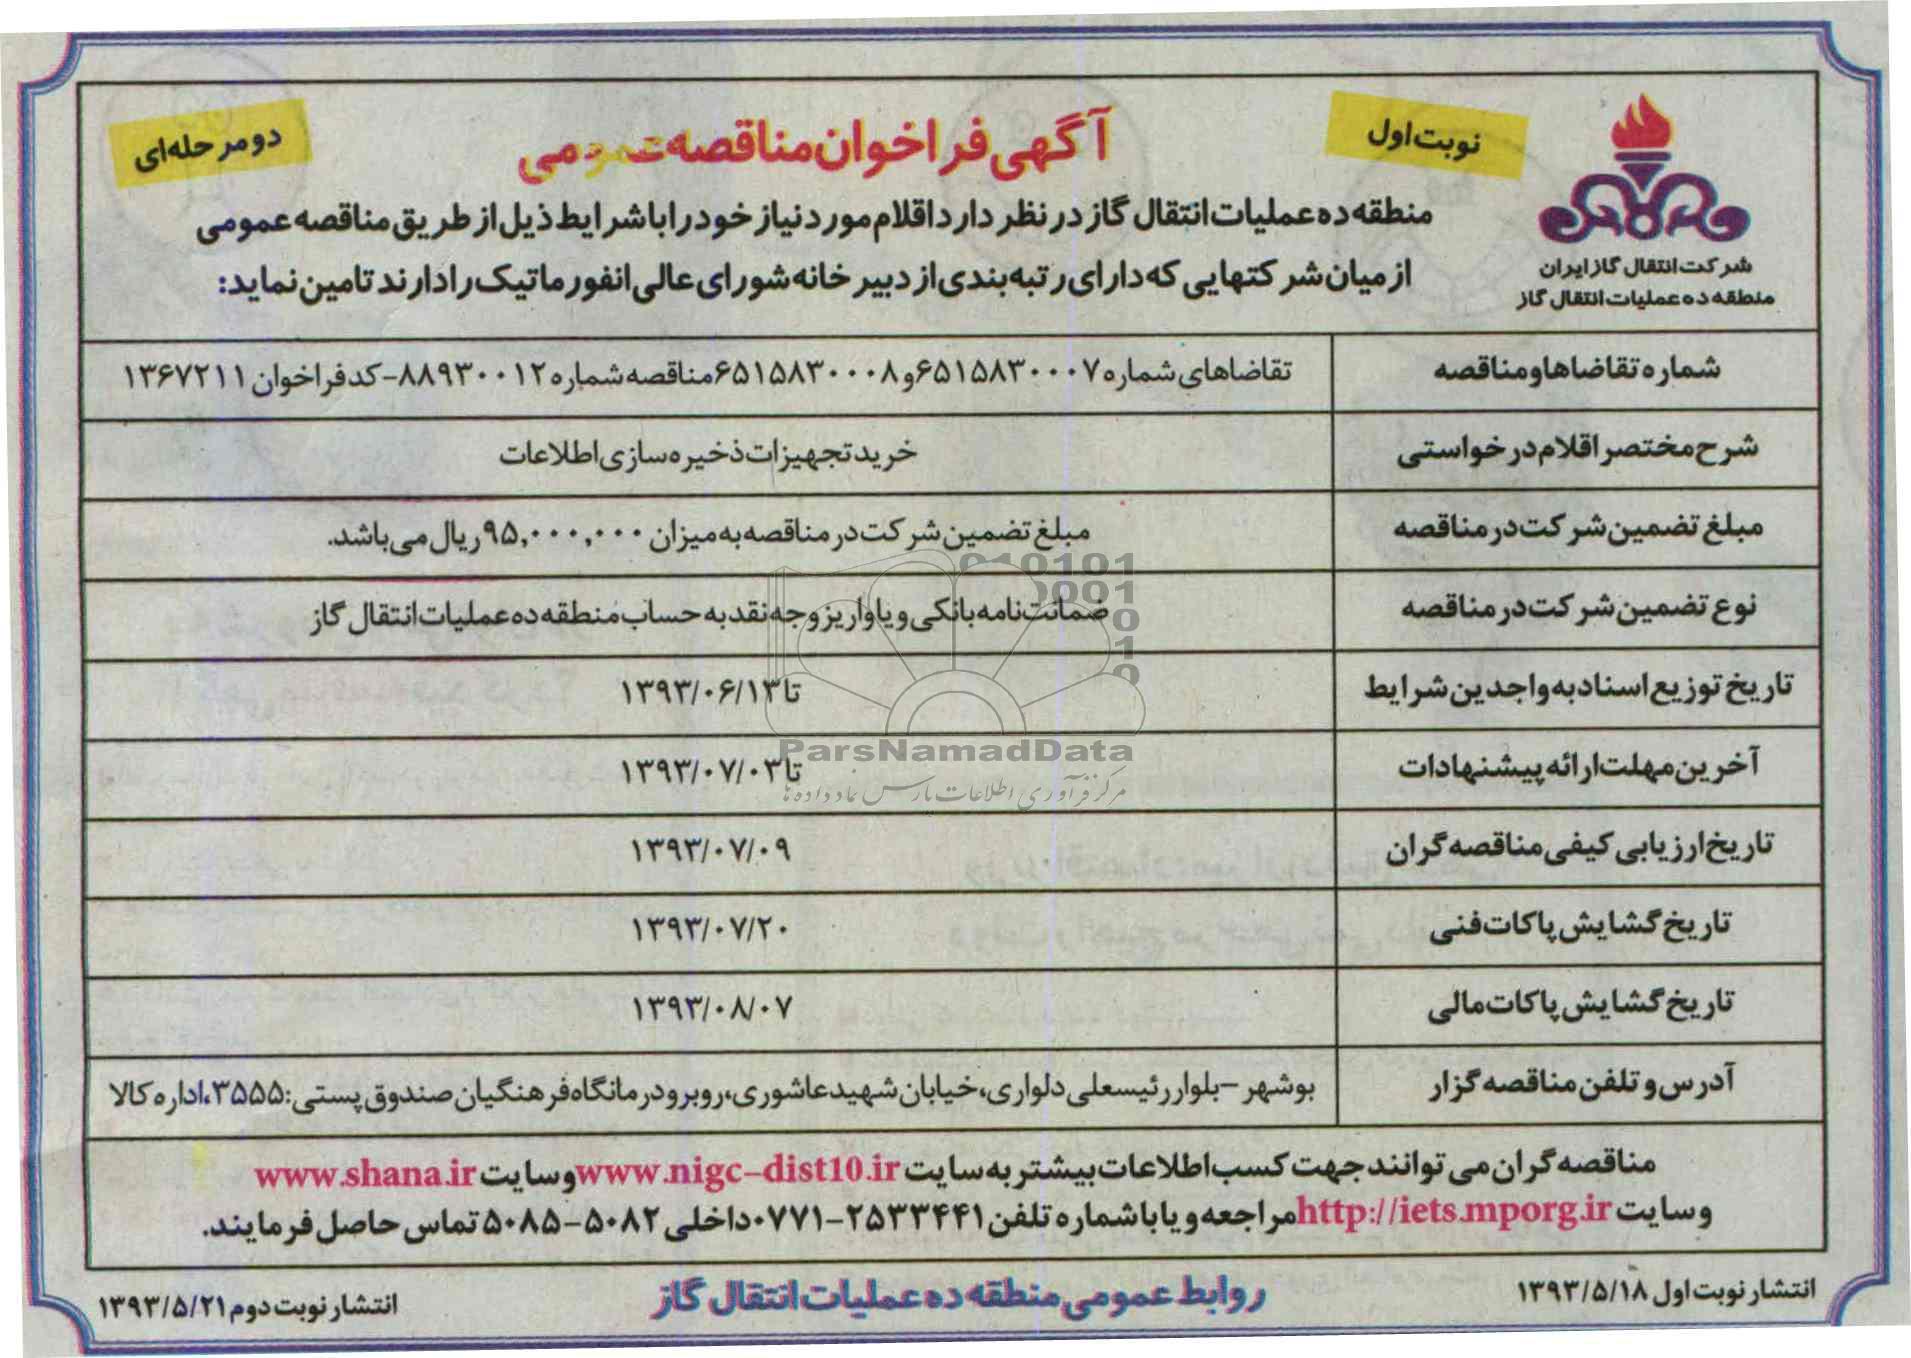 نوبت اول
آگهی فراخوان مناقصه عمومی
دو مرحله‌ای
شرکت انتقال گاز ایران
منطقه ده عملیات انتقال گاز
منطقه ده عملیات انتقال گاز در نظر دارد اقلام مورد نیاز خود را با شرایط ذیل از طریق مناقصه عمومی
از میان شرکتهایی که دارای رتبه‌بندی از دبیرخانه شورای عالی انفورماتیک را دارند تامین نماید:
شماره تقاضاها و مناقصه	تقاضاهای شماره ۶۵۱۵۸۳۰۰۰۷ و ۶۵۱۵۸۳۰۰۰۸ مناقصه شماره ۸۸۹۳۰۰۱۲- کد فراخوان ۱۳۶۷۲۱۱
شرح مختصر اقلام درخواستی	خرید تجهیزات ذخیره سازی اطلاعات
مبلغ تضمین شرکت در مناقصه	مبلغ تضمین شرکت در مناقصه به میزان ۹۵,۰۰۰,۰۰۰ ریال می باشد.
نوع تضمین شرکت در مناقصه	ضمانت نامه بانکی و یا واریز وجه نقد به حساب منطقه ده عملیات انتقال گاز
تاریخ توزیع اسناد به واجدین شرایط	تا ۱۳۹۳/۰۶/۱۳
آخرین مهلت ارائه پیشنهادات	تا ۱۳۹۳/۰۷/۰۳
تاریخ ارزیابی کیفی مناقصه گران	۱۳۹۳/۰۷/۰۹
تاریخ گشایش پاکات فنی	۱۳۹۳/۰۷/۲۰
تاریخ گشایش پاکات مالی	۱۳۹۳/۰۸/۰۷
آدرس و تلفن مناقصه گزار	بوشهر – بلوار رئیسعلی دلواری، خیابان شهید عاشوری، روبرو درمانگاه فرهنگیان صندوق پستی: ۳۵۵۵، اداره کالا
مناقصه گران می توانند جهت کسب اطلاعات بیشتر به سایت www.nigc-dist10.ir و سایت www.shana.ir
و سایت http://iets.mporg.ir مراجعه و یا با شماره تلفن ۲۵۳۳۴۴۱-۰۷۷۱ داخلی ۵۰۸۲-۵۰۸۵ تماس حاصل فرمایند.
انتشار نوبت اول ۱۳۹۳/۵/۱۸
روابط عمومی منطقه ده عملیات انتقال گاز
انتشار نوبت دوم ۱۳۹۳/۵/۲۱
010101
0001
10
1
0
ParsNamadData
مرکز فرآوری اطلاعات پارس نماد داده ها